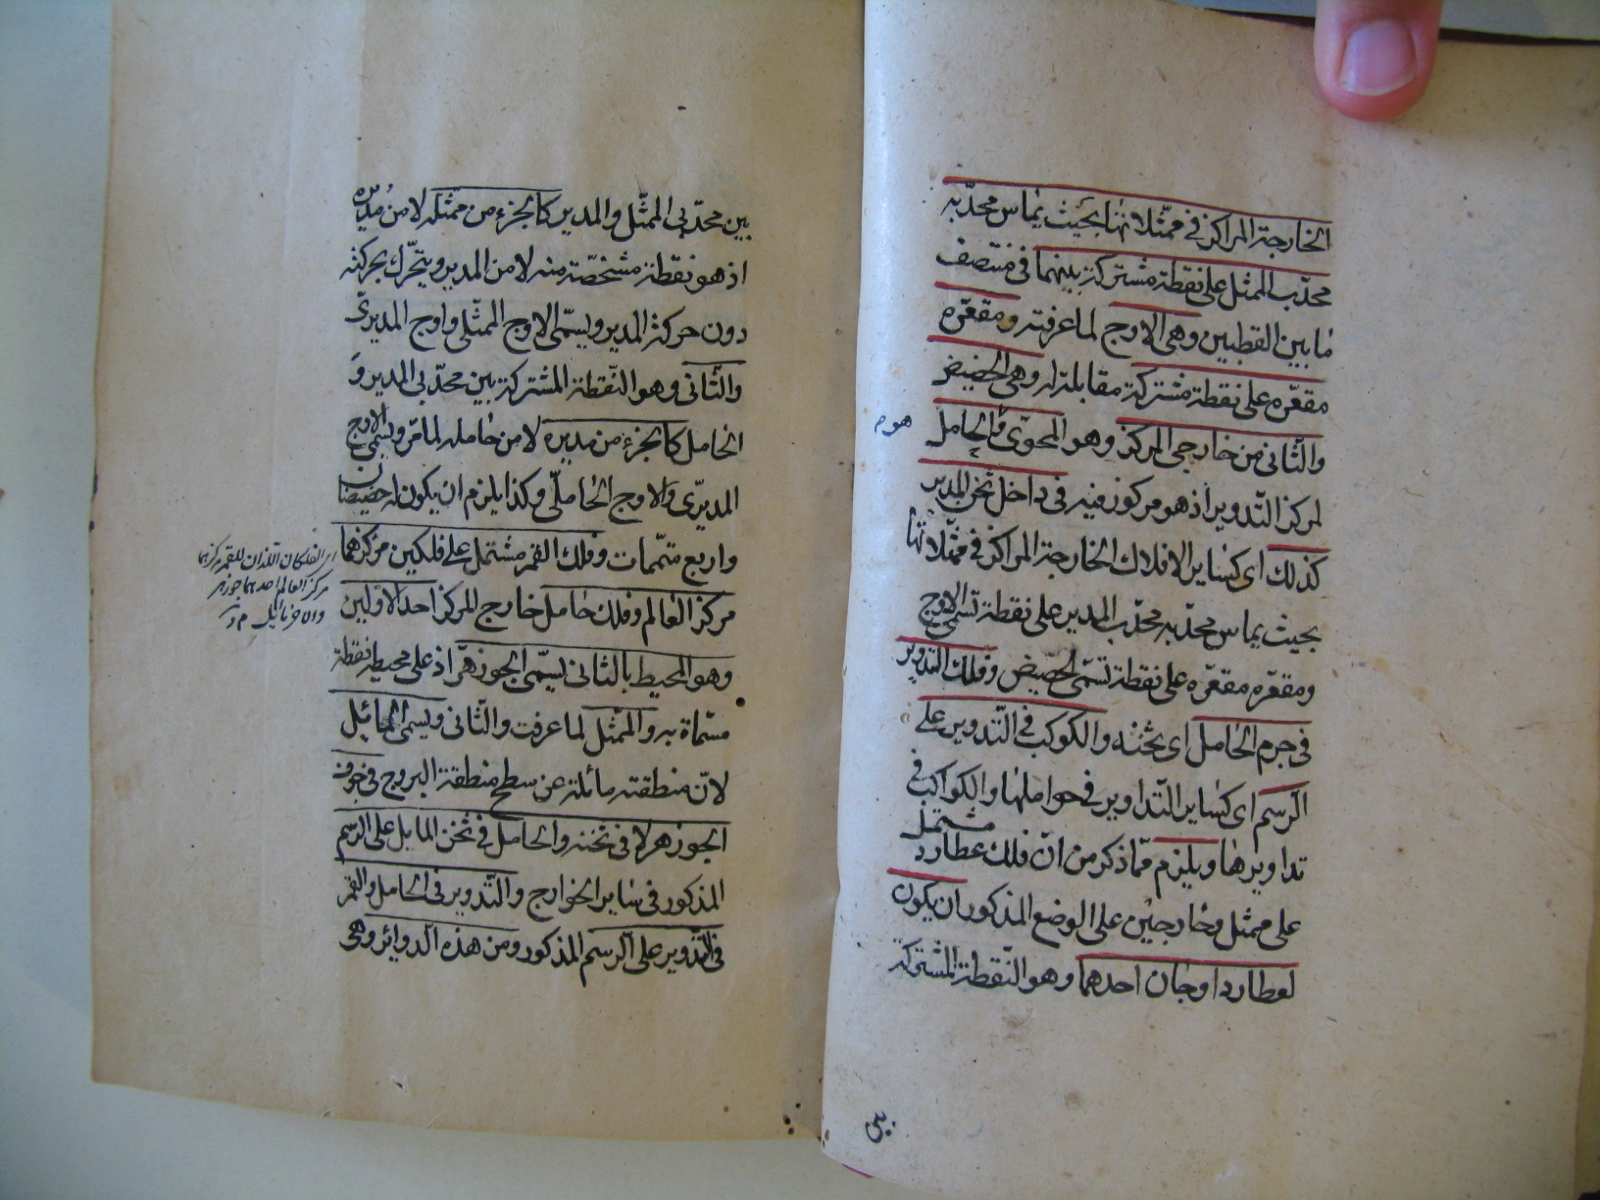 الخارجة المراكز في ممثلاتها بحيث يماس محدّبه
محدّب الممثل على نقطة مشتركة بينهما في منتصف
ما بين القطبين وهى الاوج لما عرفته ومقعّره
مقعّره على نقطة مشتركة مقابلة له وهى الحضيض
والثانى من خارجى المركز وهو المحوّى والحامل
لمركز التدوير اذ هو مركوز فيه فى داخل ثخن المدير
كذلك اى كساير الافلاك الخارجة المراكز فى ممثّلاتها
بحيث يماس محدّبه محدّب المدير على نقطة تسمى الاوج
ومقعّره مقعّره على نقطة تسمّى الحضيض وفلك التدوير
فى جرم الحامل اى ثخنه والكوكب فى التّدوير على
الرّسم اى كساير التّداوير فى حواملها والكواكب فى
تداويرها ويلزم ممّا ذكر من انّ فلك عطارد مشتمل
على ممثل وخارجين على الوضع المذكور ان يكون
لعطارد اوجان احدهما وهو النّقطة المشتركة
بين محدّبى الممثّل والمدير كالجزء من ممثّله لا من مُدِيْرِه
اذ هو نقطة مشخّصة منه لا من المدير ويتحرّك بحركته
دون حركة المدير ويسمّى الاوج الممثّلى واوج المديرىّ
والثّانى وهو النّقطة المشتركة بين محدّبى المدير وَ
الحامل كالجزء من مديره لا من حامله لما مّر ويسمّى الاوج
المديرّى والاوج الحاملّى وكذا يلزم ان يكون له حضيضان
واربع متمّمات وفلك القمر مشتمل على فلكين مركزهما
مركز العالم وفلك حامل خارج المركز احد الاولين
وهو المحيط بالثانى يسمّى الجوزهرّ اذ على محيطه نقطة
مسمّاة به والممثّل لما عرفت والثّانى ويسمى المائل
لانّ منطقته مائلة عن سطح منطقة البروج فى جوف
الجوزهر لا فى ثخنه والحامل فى ثخن المايل على الرّسم
المذكور فى ساير الخوارج والتّدوير فى الحامل والقمر
فى التّدوير على الرّسم المذكور ومن هذه الدوائر وهى
الفلكان اللذان للقمر مركزهما
مركز العالم احدهما جوزهر
والاخر مايل